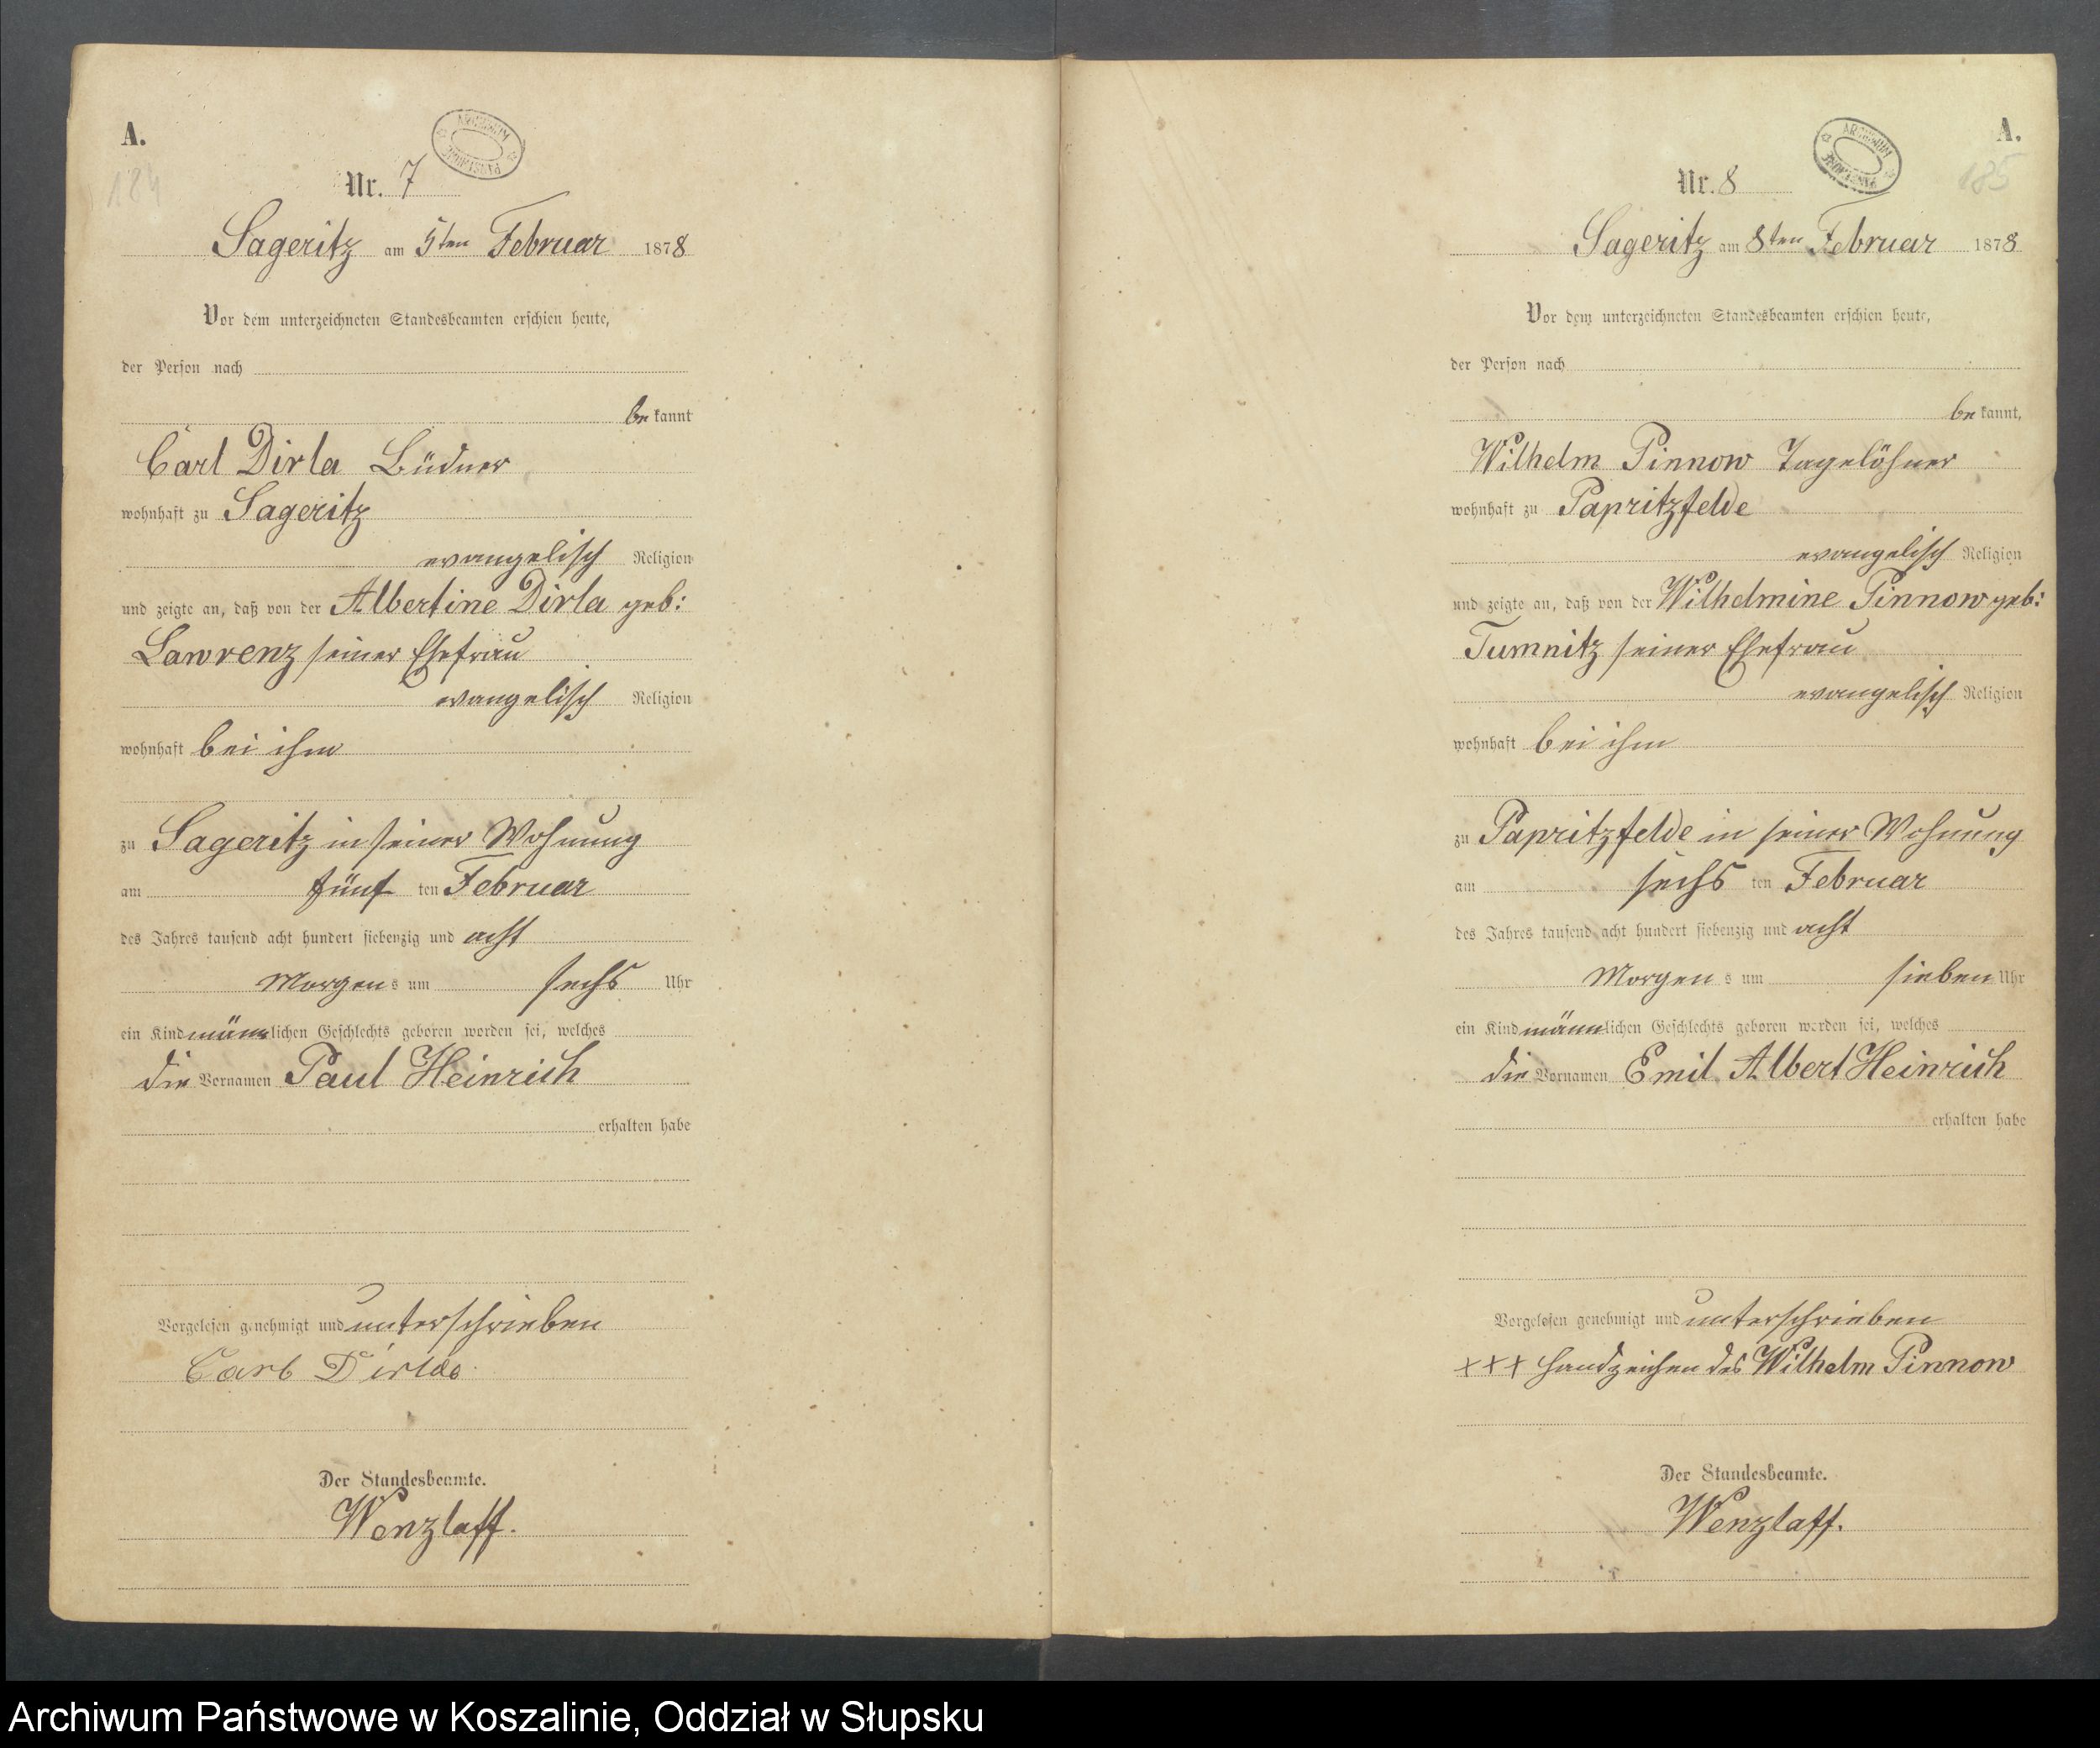 A.
124
Nr. 7
ARCHIWUM PAŃSTWOWE
Sageritz am 5ten Februar 1878
Vor dem unterzeichneten Standesbeamten erschien heute,
der Person nach
be kannt
Carl Dirla Büdner
wohnhaft zu Sageritz
evangelisch Religion
und zeigte an, daß von der Albertine Dirla geb:
Lawrenz seiner Ehefrau
evangelisch Religion
wohnhaft bei ihm
zu Sageritz in seiner Wohnung
am fünf ten Februar
des Jahres tausend acht hundert siebenzig und acht
Morgen s um sechs Uhr
ein Kind männlichen Geschlechts geboren worden sei, welches
die Vornamen Paul Heinrich
erhalten habe
Vorgelesen genehmigt und unterschrieben
Carl Dirla
Der Standesbeamte.
Wenzlaff.
A.
185
Nr. 8
ARCHIWUM PAŃSTWOWE
Sageritz am 8ten Februar 1878
Vor dem unterzeichneten Standesbeamten erschien heute,
der Person nach
be kannt,
Wilhelm Pinnow Tagelöhner
wohnhaft zu Papritzfelde
evangelisch Religion
und zeigte an, daß von der Wilhelmine Pinnow geb:
Tumnitz seiner Ehefrau
evangelisch Religion
wohnhaft bei ihm
zu Papritzfelde in seiner Wohnung
am sechs ten Februar
des Jahres tausend acht hundert siebenzig und acht
Morgen s um sieben Uhr
ein Kind männlichen Geschlechts geboren worden sei, welches
die Vornamen Emil Albert Heinrich
erhalten habe
Vorgelesen genehmigt und unterschrieben
+++ Handzeichen des Wilhelm Pinnow
Der Standesbeamte.
Wenzlaff.
Archiwum Państwowe w Koszalinie, Oddział w Słupsku